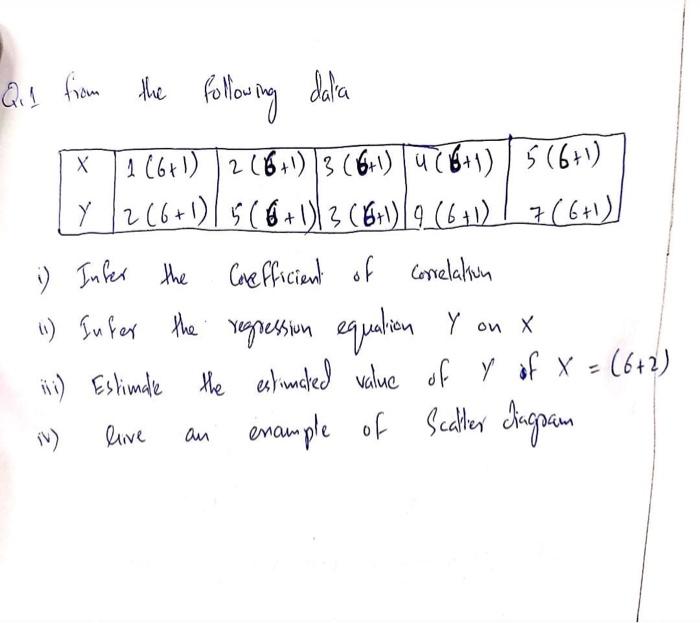 Q.1 from the following data
X 1(6+1) 2(6+1) 3(6+1) 4(6+1) 5(6+1)
Y 2(6+1) 5(6+1) 3(6+1) 9(6+1) 7(6+1)
i) Infer the Coefficient of correlation
ii) Infer the regression equation Y on X
iii) Estimate the estimated value of Y if X = (6+2)
iv) Give an example of Scatter diagram